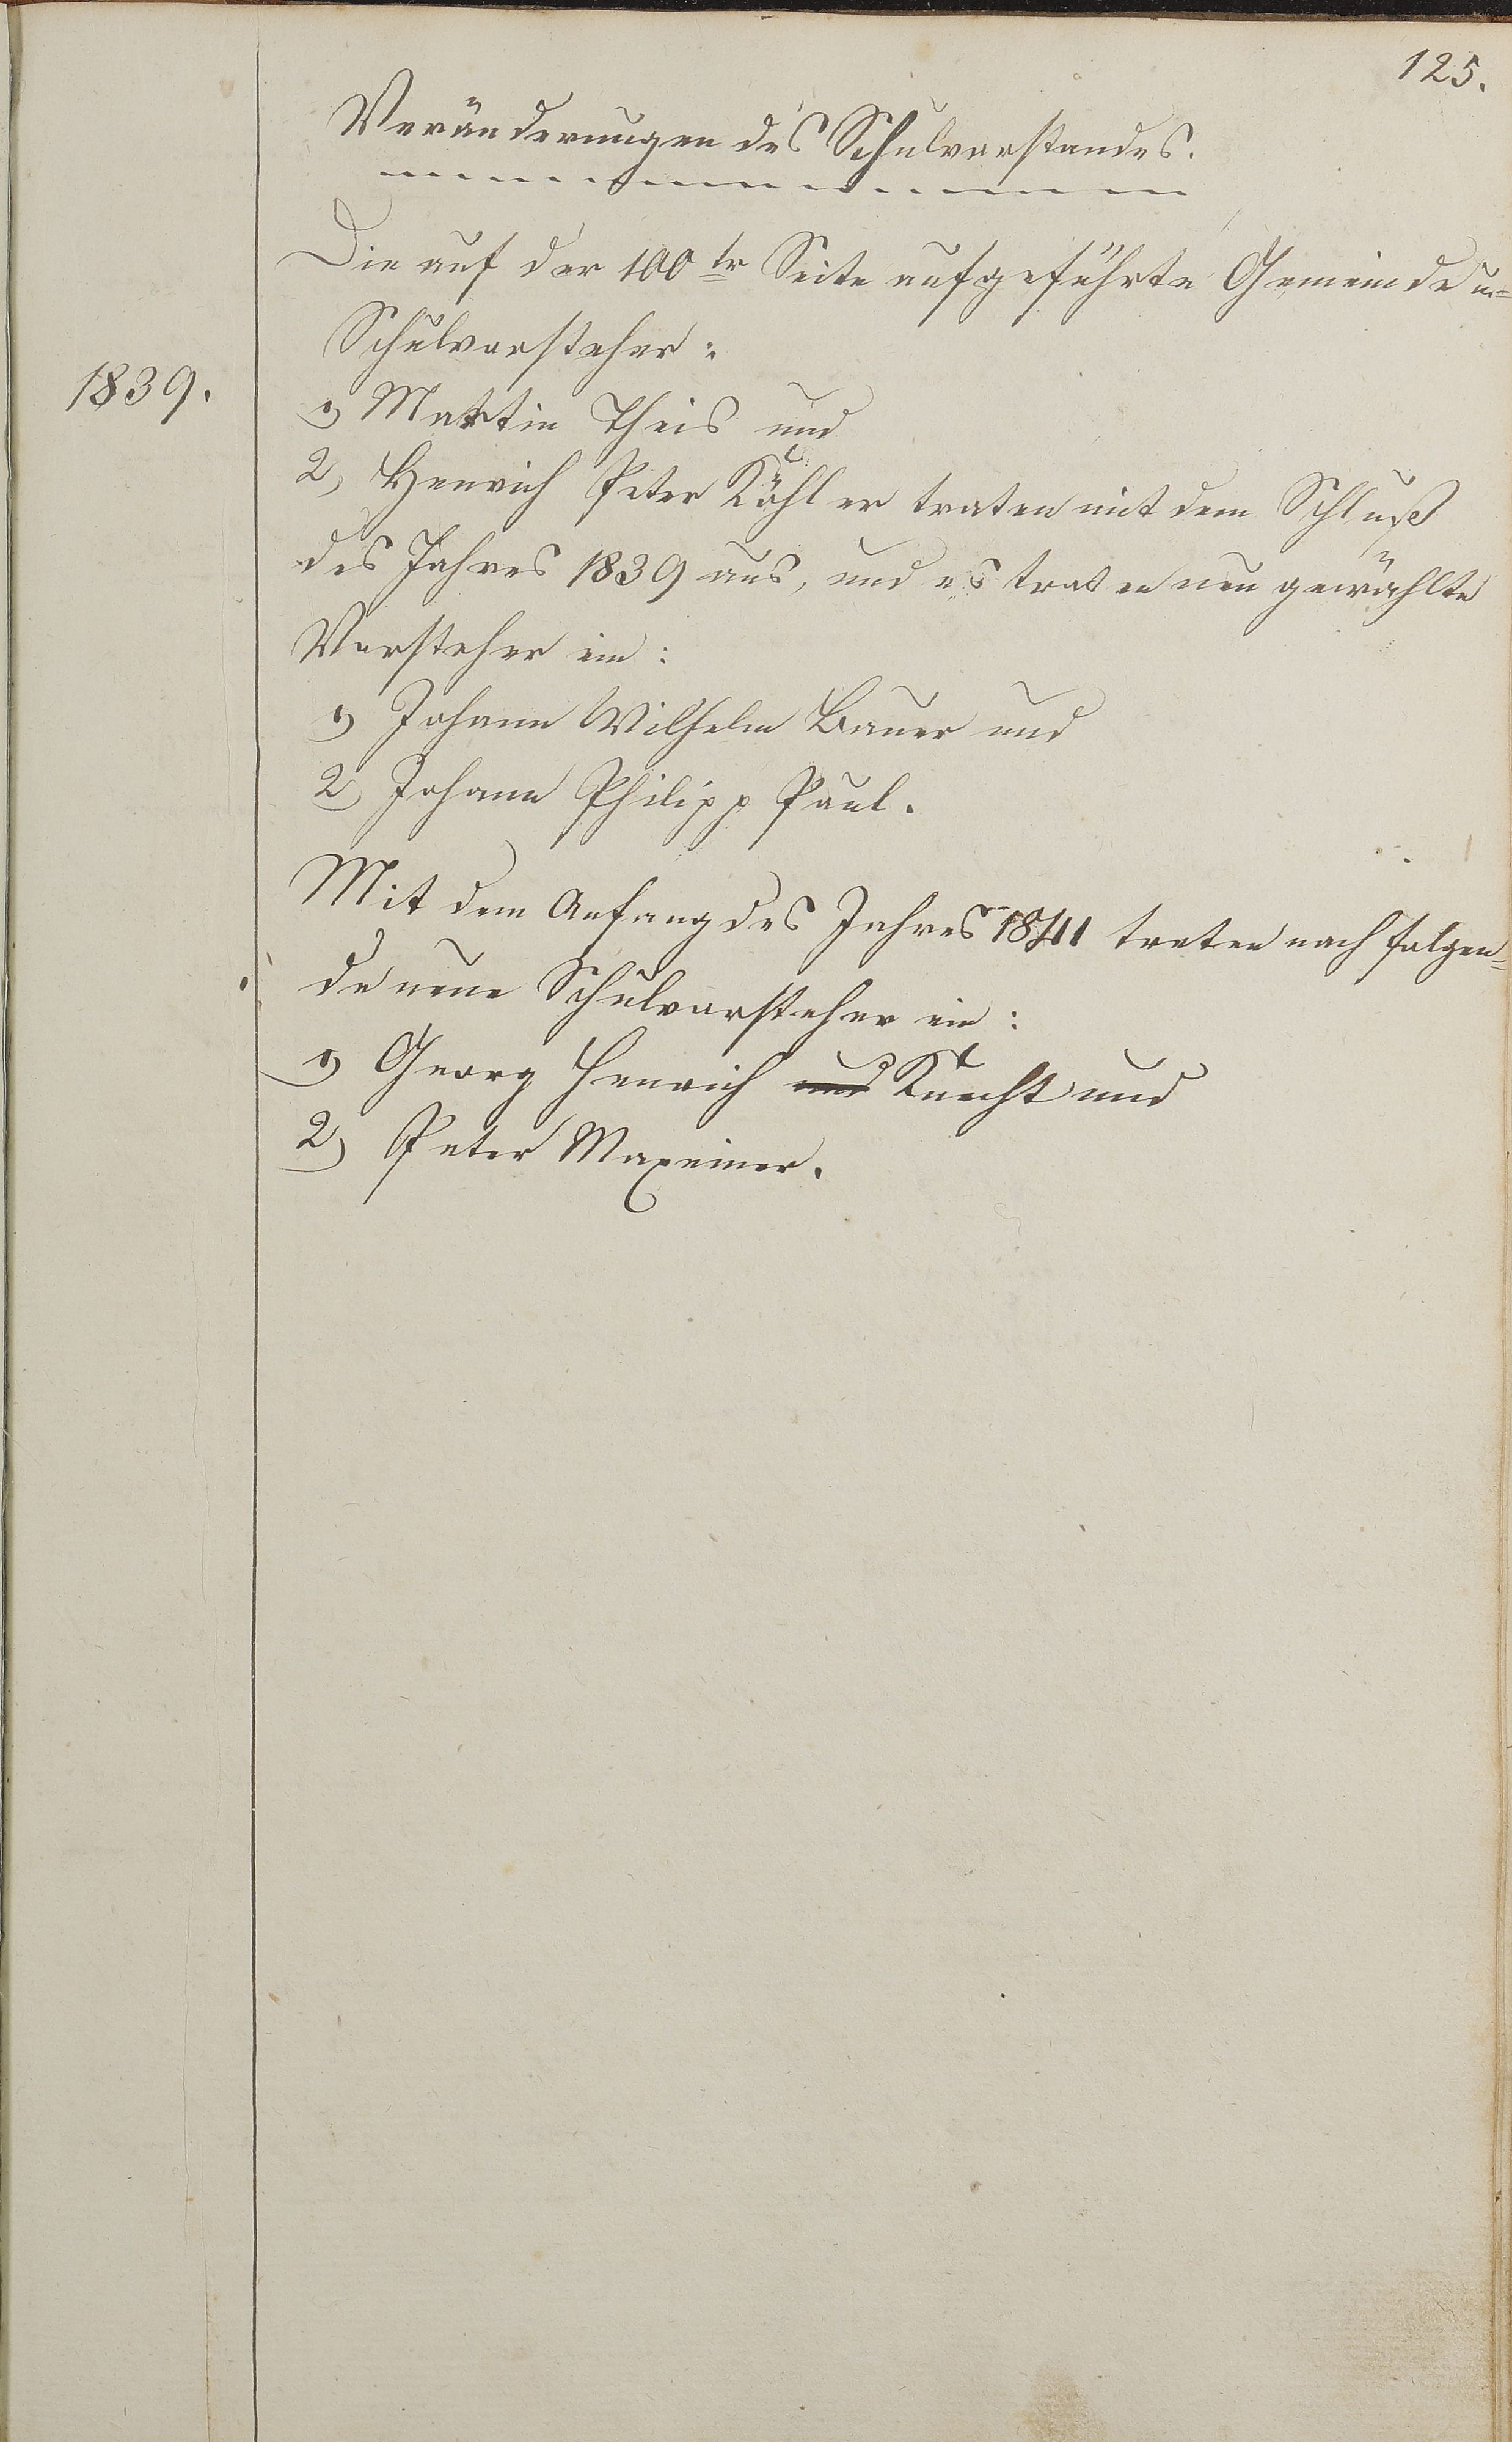 125.
Veränderungen des Schulvorstandes.
Die auf der 100tr Seite aufgeführte Gemeinde u=
Schulvorsteher:
1839.
1) Martin Theis und
2, Henrich Peter Köhler traten mit dem Schluß
des Jahres 1839 aus, und es traten neu gewählte
Vorsteher ein:
1) Johann Wilhelm Bauer und
2) Johann Philipp Paul.
Mit dem Anfang des Jahres 1841 treten nachfolgen=
de neue Schulvorsteher ein:
1) Georg Henrich und Knecht und
2) Peter Maxeiner.